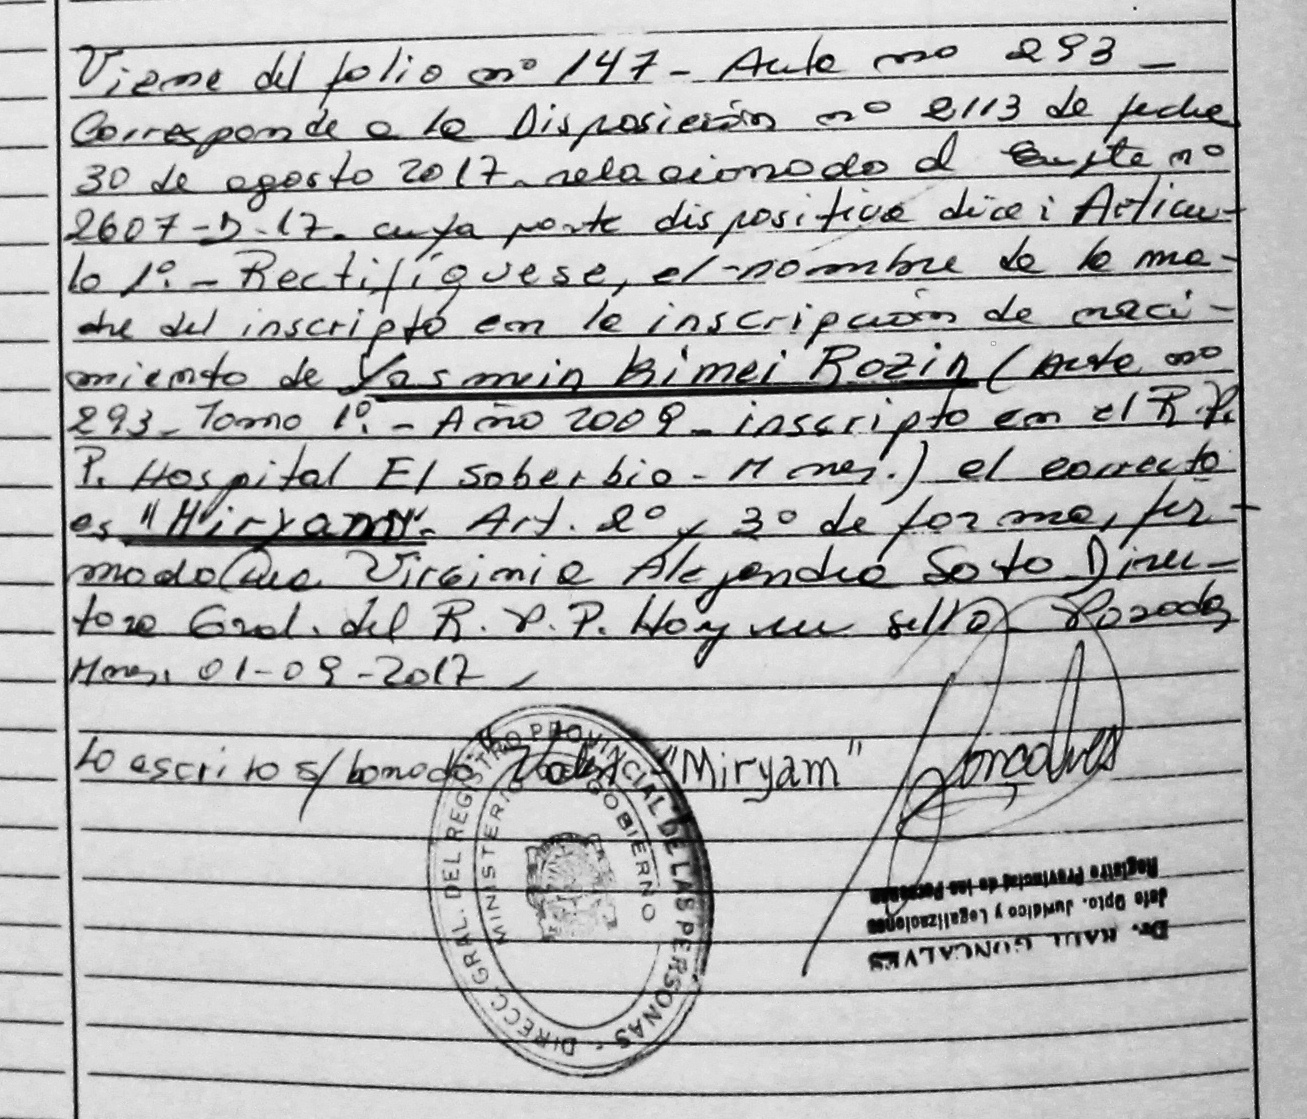 Viene del folio nº 147 - Acta nº 293 -
Corresponde a la Disposición nº 2113 de fecha
30 de agosto 2017 - relacionado al Expte nº
2607-D-17 - cuya parte dispositiva dice: Articu-
lo 1º. - Rectifíquese, el nombre de la ma-
dre del inscripto en la inscripción de naci-
miento de Yasmin Bimei Rozin (Acta nº
293 - Tomo 1º. - Año 2009 - inscripto en el R.P.
P. Hospital El Soberbio - Mnes.) el correcto
es "Miryam" - Art. 2º y 3º de forma, fir-
mado Virginia Alejandra Soto Direc-
tora Gral. del R.P.P. Hay un sello - Posadas,
Mnes. 01-09-2017
Lo escrito s/ borrado: Vale: "Miryam"
Goncalves
DIRECC. GRAL. DEL REGISTRO PROVINCIAL DE LAS PERSONAS -
MINISTERIO DE GOBIERNO
Dr. RAUL GONCALVES
Jefe Dpto. Jurídico y Legalizaciones
Registro Provincial de las Personas